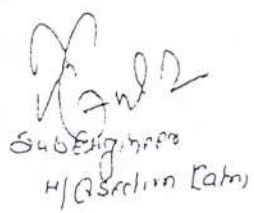 SubEngineer
H/Q Section Katni